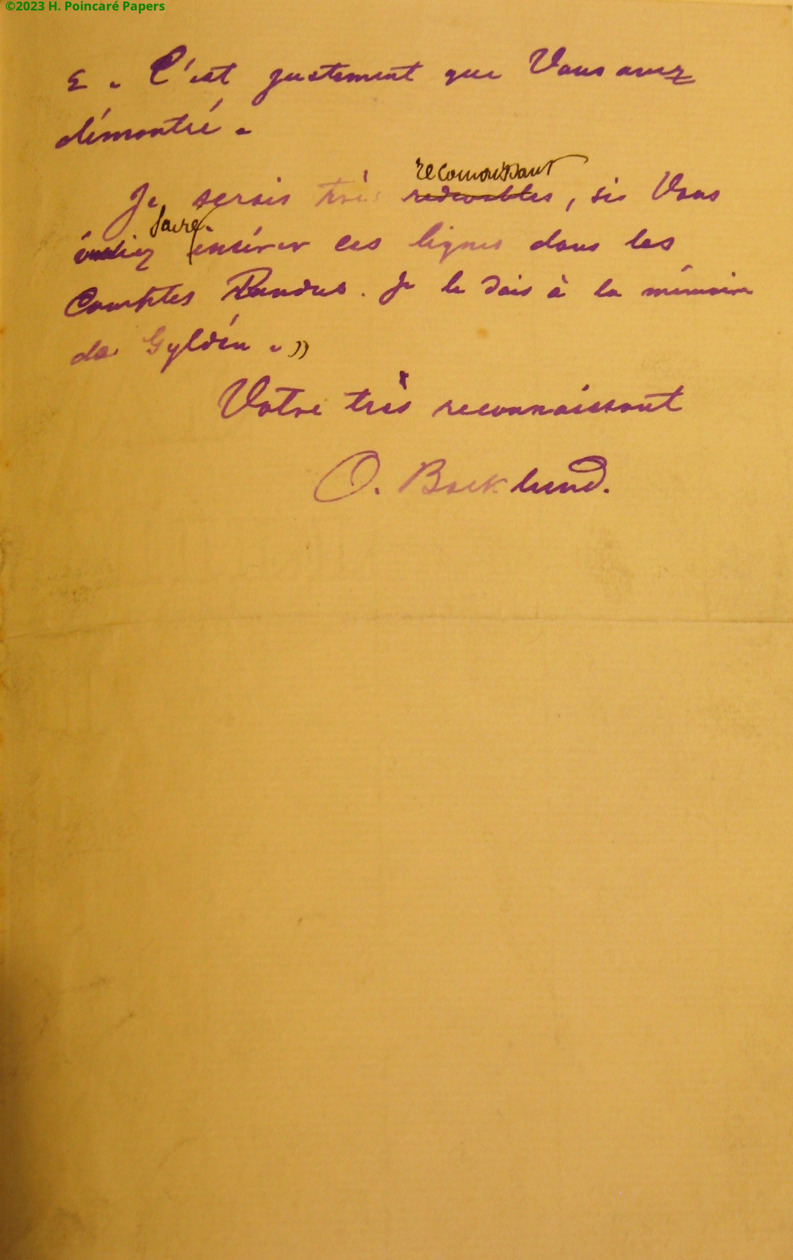 ©2023 H. Poincaré Papers
ε. C'est justement que Vous avez
démontré.
reconnoissant
Je serais très redevables, sis Vous
faire
insérer ces lignes dans les
Comptes Rendus. Je le dois à la mémoire
de Gyldén. »
Votre très reconnaissant
O. Backlund.